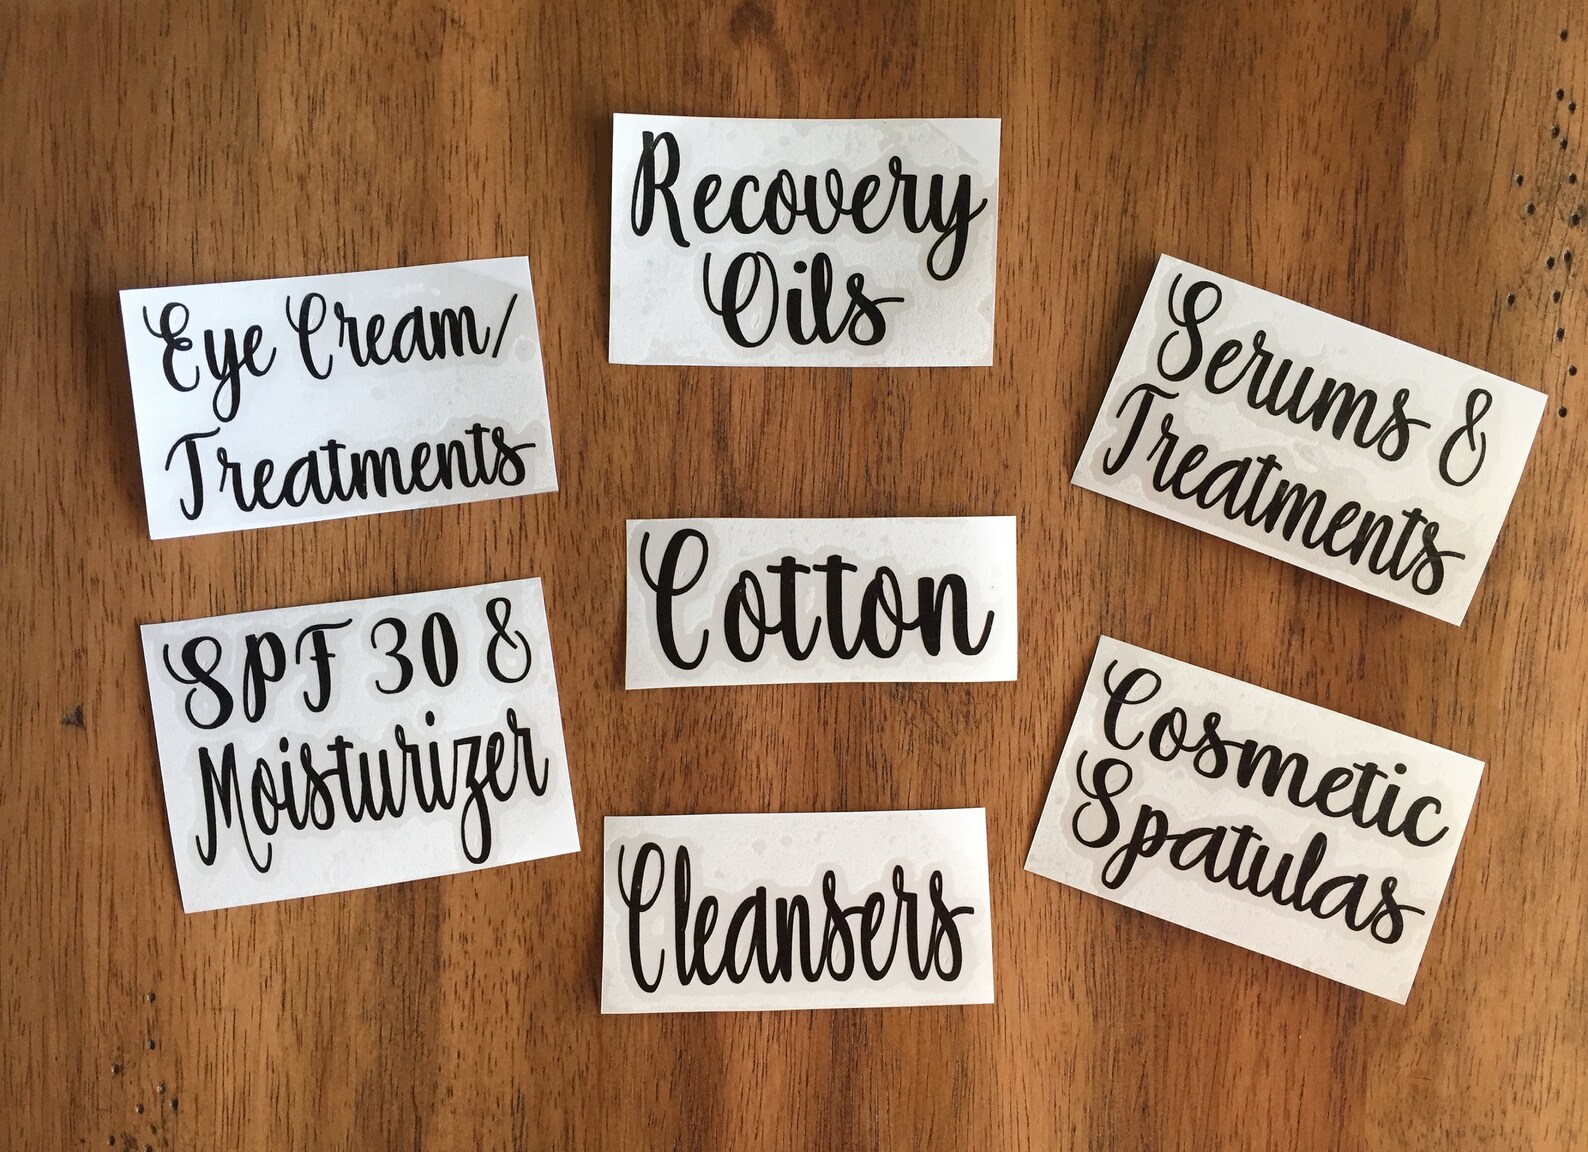 Recovery
Oils
Eye Cream/
Treatments
Serums &
Treatments
Cotton
SPF 30 &
Moisturizer
Cosmetic
Spatulas
Cleansers